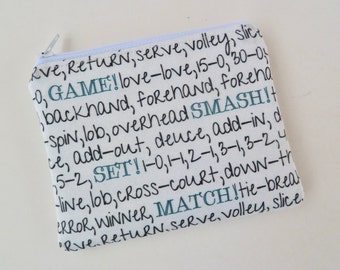 rve, return, serve, volley, slice
0, GAME! love-love, 15-0, 30-0
backhand, forehand, forehand
-spin, lob, overhead SMASH!
ce, add-out, deuce, add-in, d
, 5-2, SET! 1-0, 1-1, 2-1, 3-1, 3-2,
-line, lob, cross-court, down-th
error, winner, MATCH! tie-brea
rve, return, serve, volley, slice